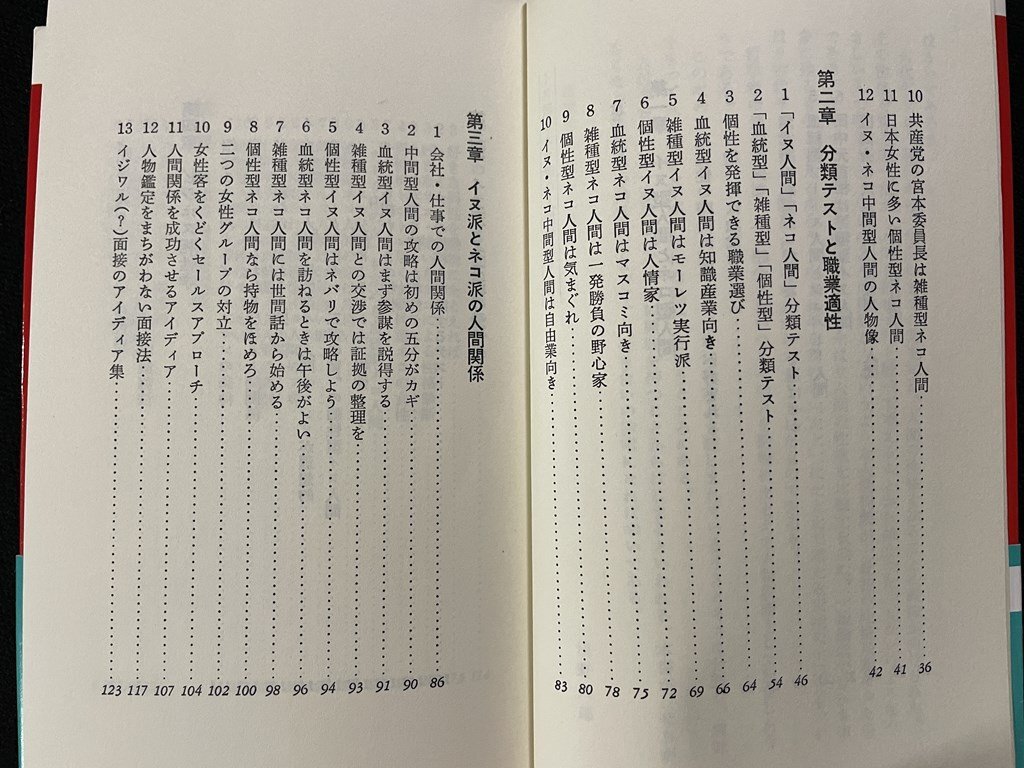 10 共産党の宮本委員長は雑種型ネコ人間……36
11 日本女性に多い個性型ネコ人間……41
12 イヌ・ネコ中間型人間の人物像……42
第二章 分類テストと職業適性
1 「イヌ人間」「ネコ人間」分類テスト……46
2 「血統型」「雑種型」「個性型」分類テスト……54
3 個性を発揮できる職業選び……64
4 血統型イヌ人間は知識産業向き……66
5 雑種型イヌ人間はモーレツ実行派……69
6 個性型イヌ人間は人情家……72
7 血統型ネコ人間はマスコミ向き……75
8 雑種型ネコ人間は一発勝負の野心家……78
9 個性型ネコ人間は気まぐれ……80
10 イヌ・ネコ中間型人間は自由業向き……83
第三章 イヌ派とネコ派の人間関係
1 会社・仕事での人間関係……86
2 中間型人間の攻略は初めの五分がカギ……90
3 血統型イヌ人間はまず参謀を説得する……91
4 雑種型イヌ人間との交渉では証拠の整理を……93
5 個性型イヌ人間はネバリで攻略しよう……94
6 血統型ネコ人間を訪ねるときは午後がよい……96
7 雑種型ネコ人間には世間話から始める……98
8 個性型ネコ人間なら持物をほめろ……100
9 二つの女性グループの対立……102
10 女性客をくどくセールスアプローチ……104
11 人間関係を成功させるアイディア……107
12 人物鑑定をまちがわない面接法……117
13 イジワル(?)面接のアイディア集……123